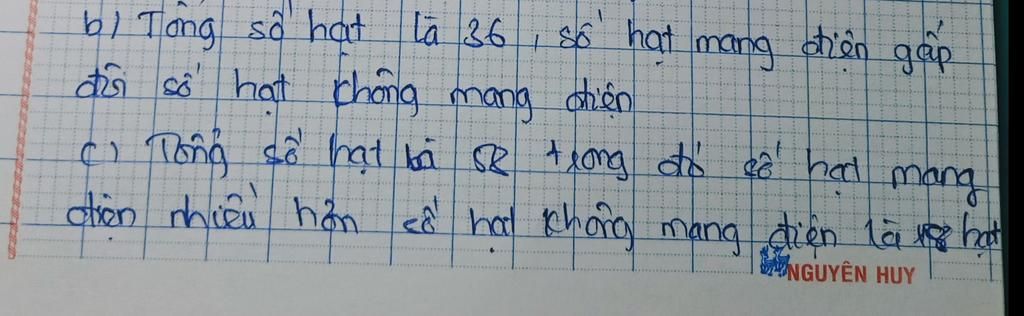 b) Tổng số hạt là 36, số hạt mang điện gấp
đôi số hạt không mang điện
c) Tổng số hạt là 52 trong đó số hạt mang
điện nhiều hơn số hạt không mang điện là hạt
NGUYÊN HUY